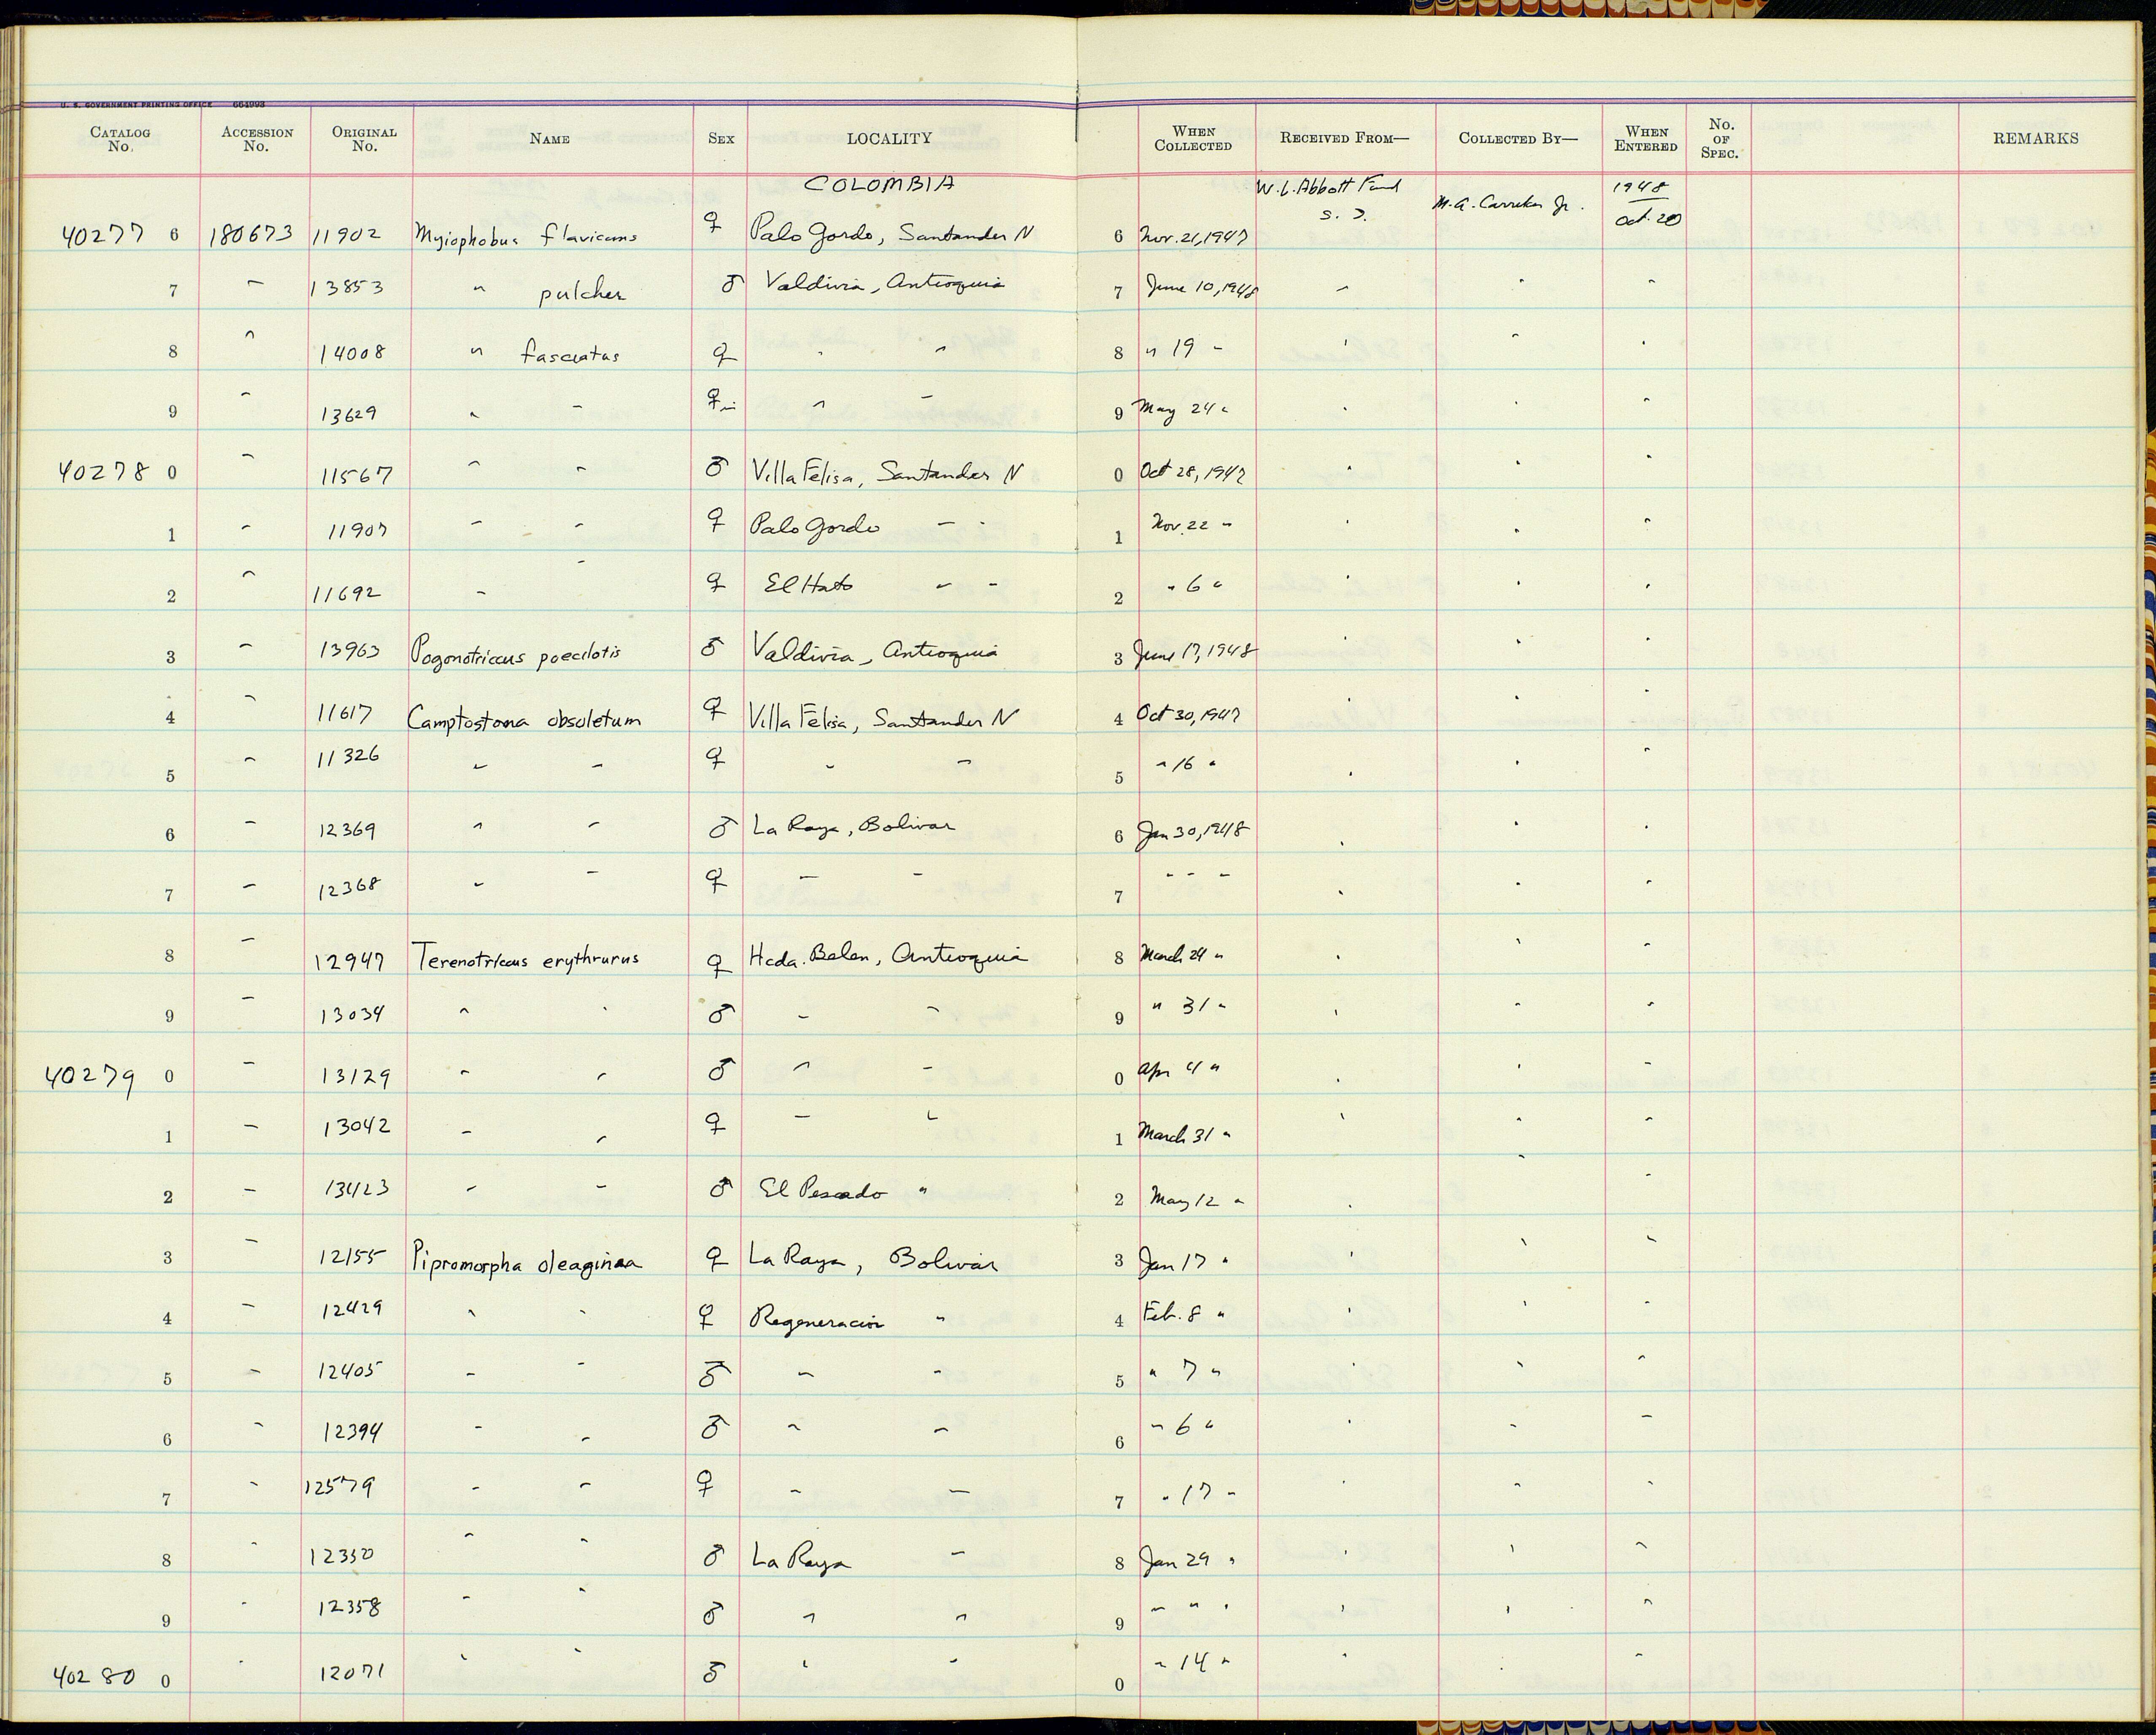 U. S. GOVERNMENT PRINTING OFFICE 664993
CATALOG No. ACCESSION No. ORIGINAL No. NAME SEX LOCALITY WHEN COLLECTED RECEIVED FROM— COLLECTED BY— WHEN ENTERED No. OF SPEC. REMARKS
COLOMBIA W. L. Abbott Fund S. I. M. A. Carriker Jr. 1948 Oct. 20
40277 6 180673 11902 Myiophobus flavicans ♀ Palo Gordo, Santander N 6 Nov. 21, 1947
7 " 13853 " pulcher ♂ Valdivia, Antioquia 7 June 10, 1948 " " "
8 " 14008 " fasciatus ♀ " " 8 " 19 " " " "
9 " 13629 " " ♀ im " " 9 May 24 " " " "
40278 0 " 11567 " " ♂ Villa Felisa, Santander N 0 Oct 28, 1947 " " "
1 " 11907 " " ♀ Palo Gordo " " 1 Nov. 22 " " " "
2 " 11692 " " ♀ El Hato " " 2 " 6 " " " "
3 " 13963 Pogonotriccus poecilotis ♂ Valdivia, Antioquia 3 June 17, 1948 " " "
4 " 11617 Camptostoma obsoletum ♀ Villa Felisa, Santander N 4 Oct 30, 1947 " " "
5 " 11326 " " ♀ " " 5 " 16 " " " "
6 " 12369 " " ♂ La Raya, Bolivar 6 Jan 30, 1948 " " "
7 " 12368 " " ♀ " " 7 " " " " " "
8 " 12947 Terenotriccus erythrurus ♀ Hcda. Belen, Antioquia 8 March 24 " " " "
9 " 13034 " " ♂ " " 9 " 31 " " " "
40279 0 " 13129 " " ♂ " " 0 Apr 4 " " " "
1 " 13042 " " ♀ " " 1 March 31 " " " "
2 " 13423 " " ♂ El Pescado " 2 May 12 " " " "
3 " 12155 Pipromorpha oleaginea ♀ La Raya, Bolivar 3 Jan 17 " " " "
4 " 12429 " " ♀ Regeneracion " 4 Feb. 8 " " " "
5 " 12405 " " ♂ " " 5 " 7 " " " "
6 " 12394 " " ♂ " " 6 " 6 " " " "
7 " 12579 " " ♀ " " 7 " 17 " " " "
8 " 12350 " " ♂ La Raya " 8 Jan 29 " " " "
9 " 12358 " " ♂ " " 9 " " " " " "
40280 0 " 12071 " " ♂ " " 0 " 14 " " " "